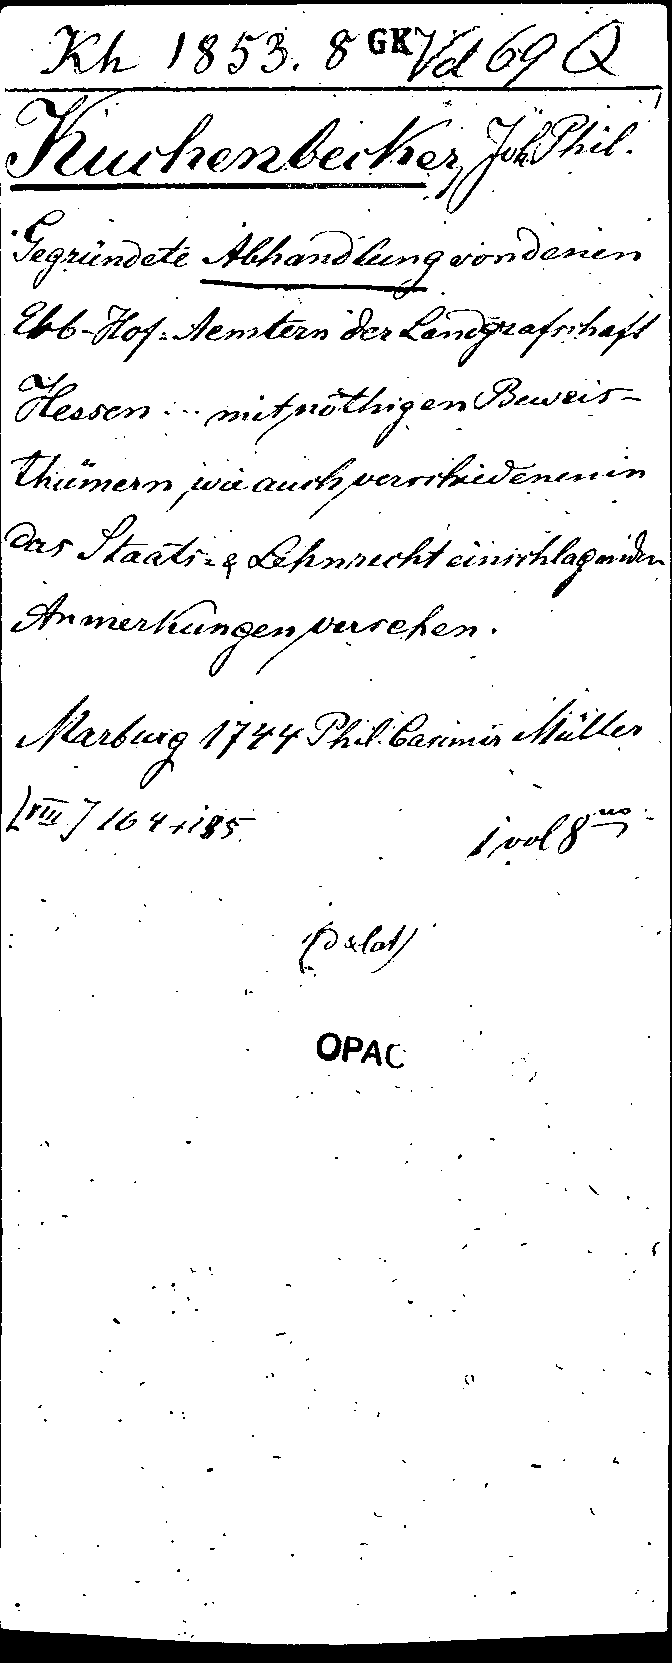 Kh 1853. 8 GK Vd 69 Q
Kuchenbecker, Joh. Phil.
Gegründete Abhandlung von denen
Erb-Hof-Aemtern der Landgrafschaft
Hessen ... mit nöthigen Beweis-
thümern, wie auch verschiedenen in
das Staats- & Lehnrecht einschlagenden
Anmerkungen versehen.
Marburg 1744 Phil. Casimir Müller
[VIII] 164 + 185
1 vol 8no
(D & lat)
OPAC